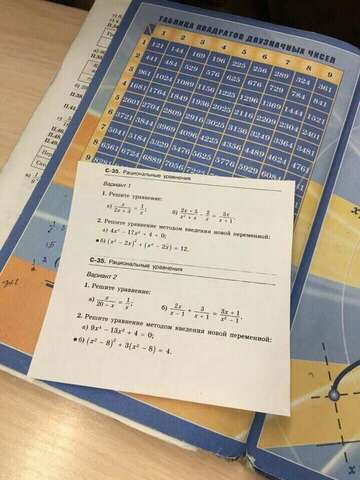 ТАБЛИЦА КВАДРАТОВ ДВУЗНАЧНЫХ ЧИСЕЛ
1 2 3 4 5 6 7 8 9
1 121 144 169 196 225 256 289 324 361
2 441 484 529 576 625 676 729 784 841
3 961 1024 1089 1156 1225 1296 1369 1444 1521
4 1681 1764 1849 1936 2025 2116 2209 2304 2401
5 2601 2704 2809 2916 3025 3136 3249 3364 3481
6 3721 3844 3969 4096 4225 4356 4489 4624 4761
7 5041 5184 5329 5476 5625 5776 5929
8 6561 6724 6889 7056
9
С-35. Рациональные уравнения
Вариант 1
1. Решите уравнение:
а) x/(2x + 3) = 1/x; б)
2. Решите уравнение методом введения новой переменной:
а) 4x⁴ − 17x² + 4 = 0;
● б) (x² − 2x)² + (x² − 2x) = 12.
С-35. Рациональные уравнения
Вариант 2
1. Решите уравнение:
а) x/(20 − x) = 1/x; б) 2x/(x − 1) + 3/(x + 1) = (3x + 1)/(x² − 1).
2. Решите уравнение методом введения новой переменной:
а) 9x⁴ − 13x² + 4 = 0;
● б) (x² − 8)² + 3(x² − 8) = 4.